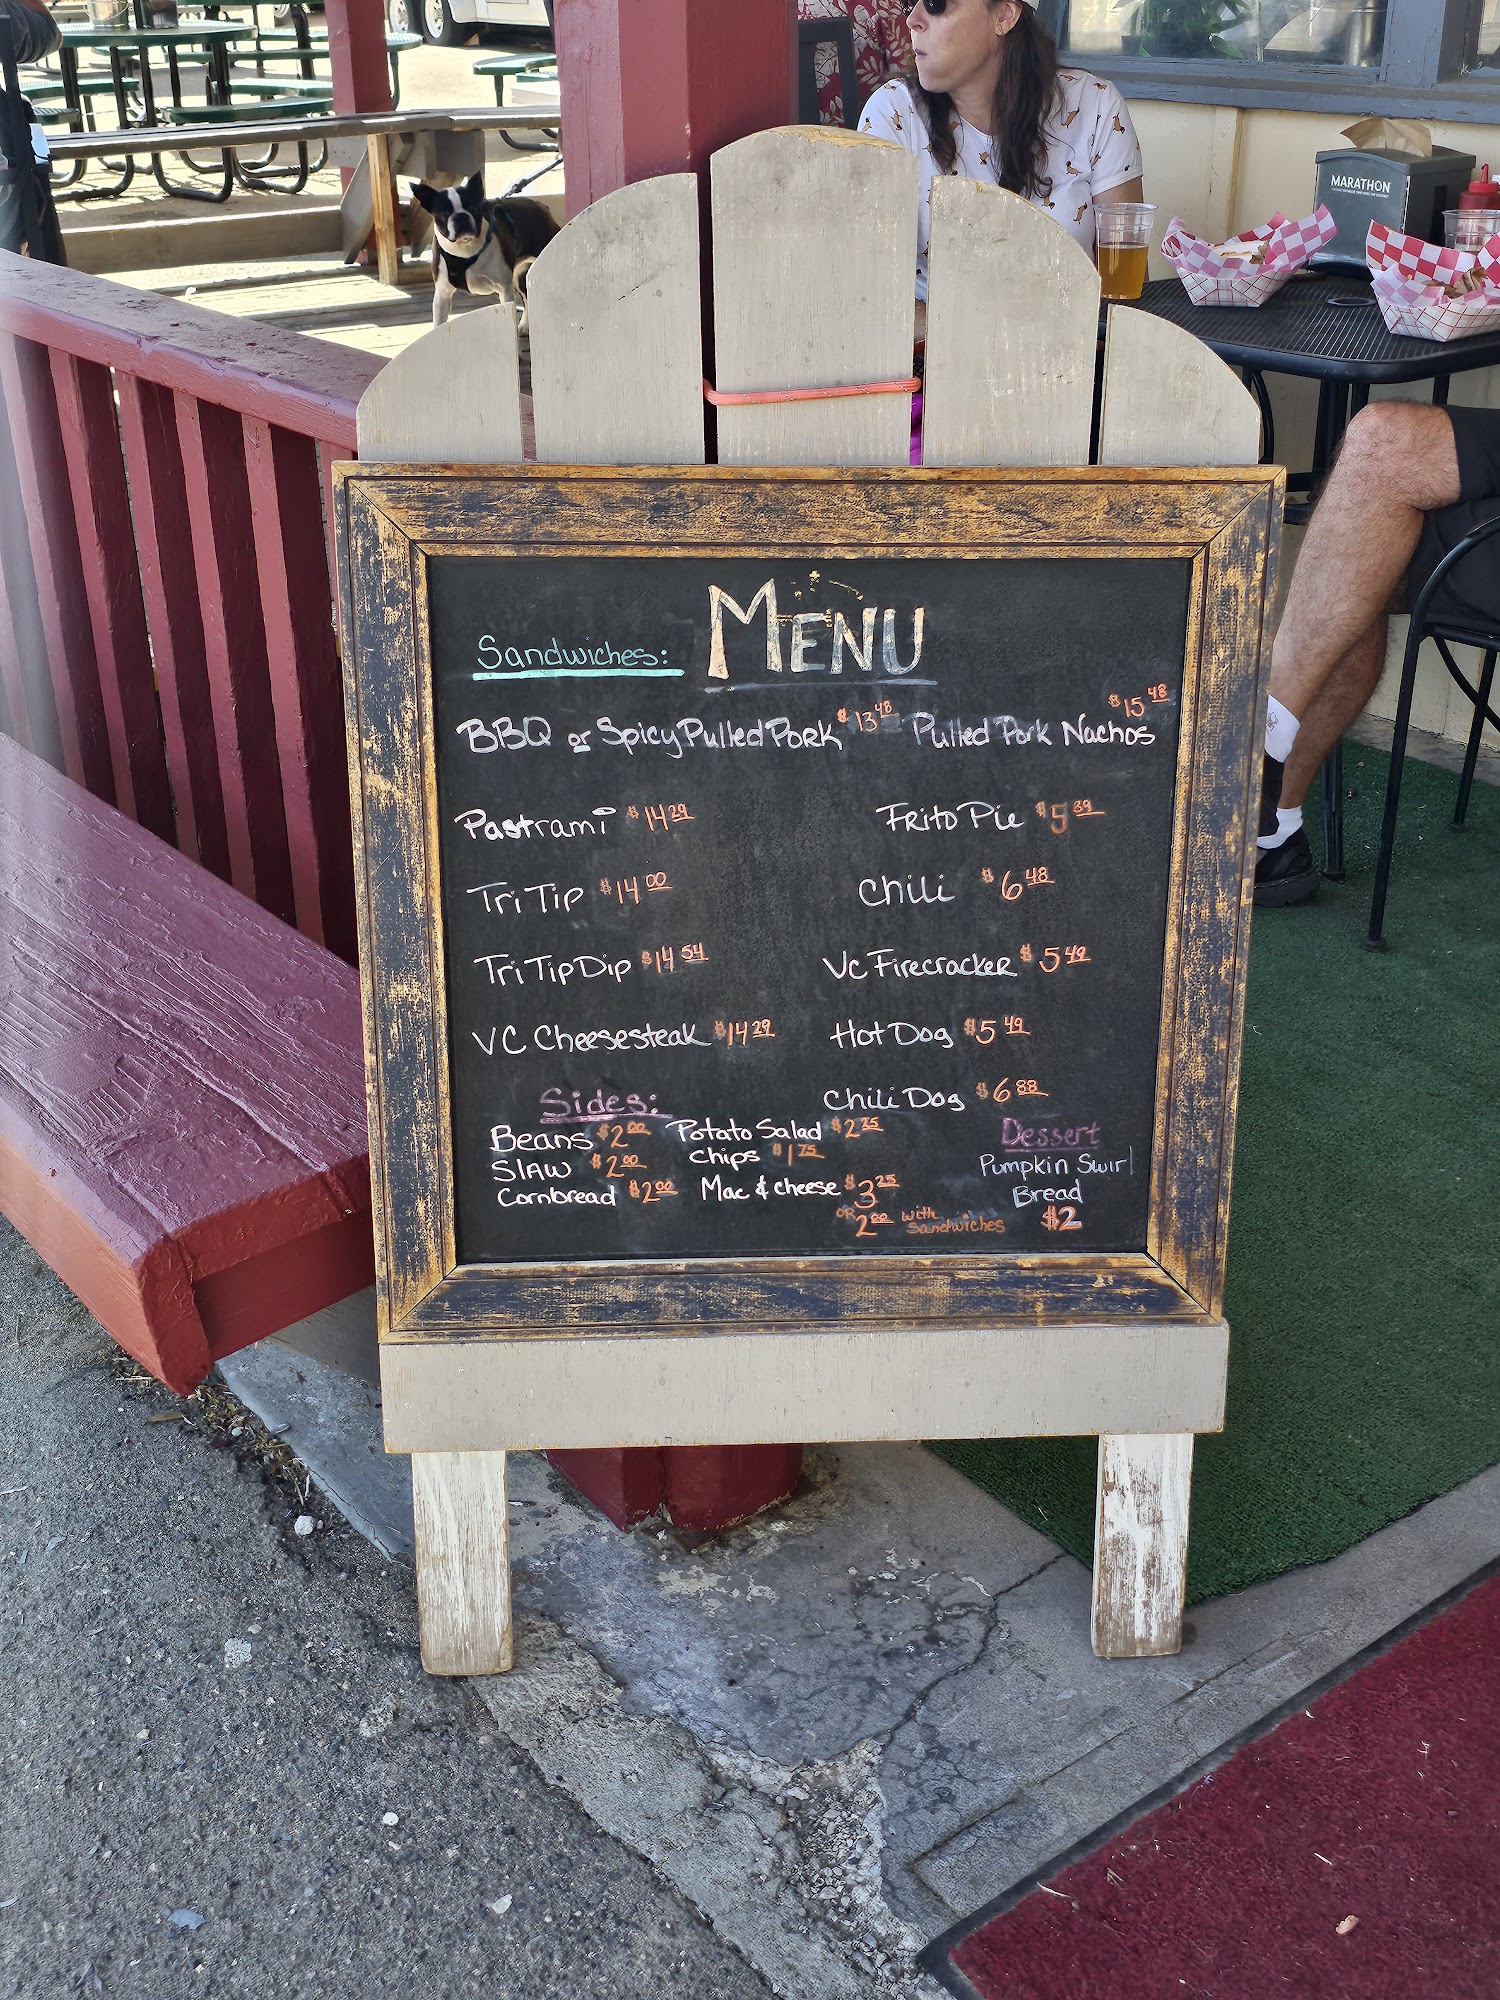 MARATHON
MENU
Sandwiches:
BBQ or Spicy Pulled Pork $13.48
Pastrami $14.29
Tri Tip $14.00
Tri Tip Dip $14.54
VC Cheesesteak $14.29
Pulled Pork Nachos $15.48
Frito Pie $5.39
Chili $6.48
VC Firecracker $5.49
Hot Dog $5.49
Chili Dog $6.88
Sides:
Beans $2.00
Slaw $2.00
Cornbread $2.00
Potato Salad $2.25
Chips $1.75
Mac & Cheese $3.25
OR 2.00 with Sandwiches
Dessert
Pumpkin Swirl
Bread
$2